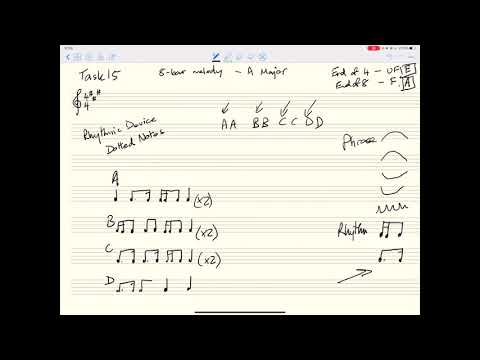 Task 15 8-bar melody - A Major End of 4 - UF E
End of 8 - F. A
4
4
Rhythmic Device
Dotted Notes
AA BB CC DD
Phrase
A
(x2)
B
(x2)
Rhythm
C
(x2)
D